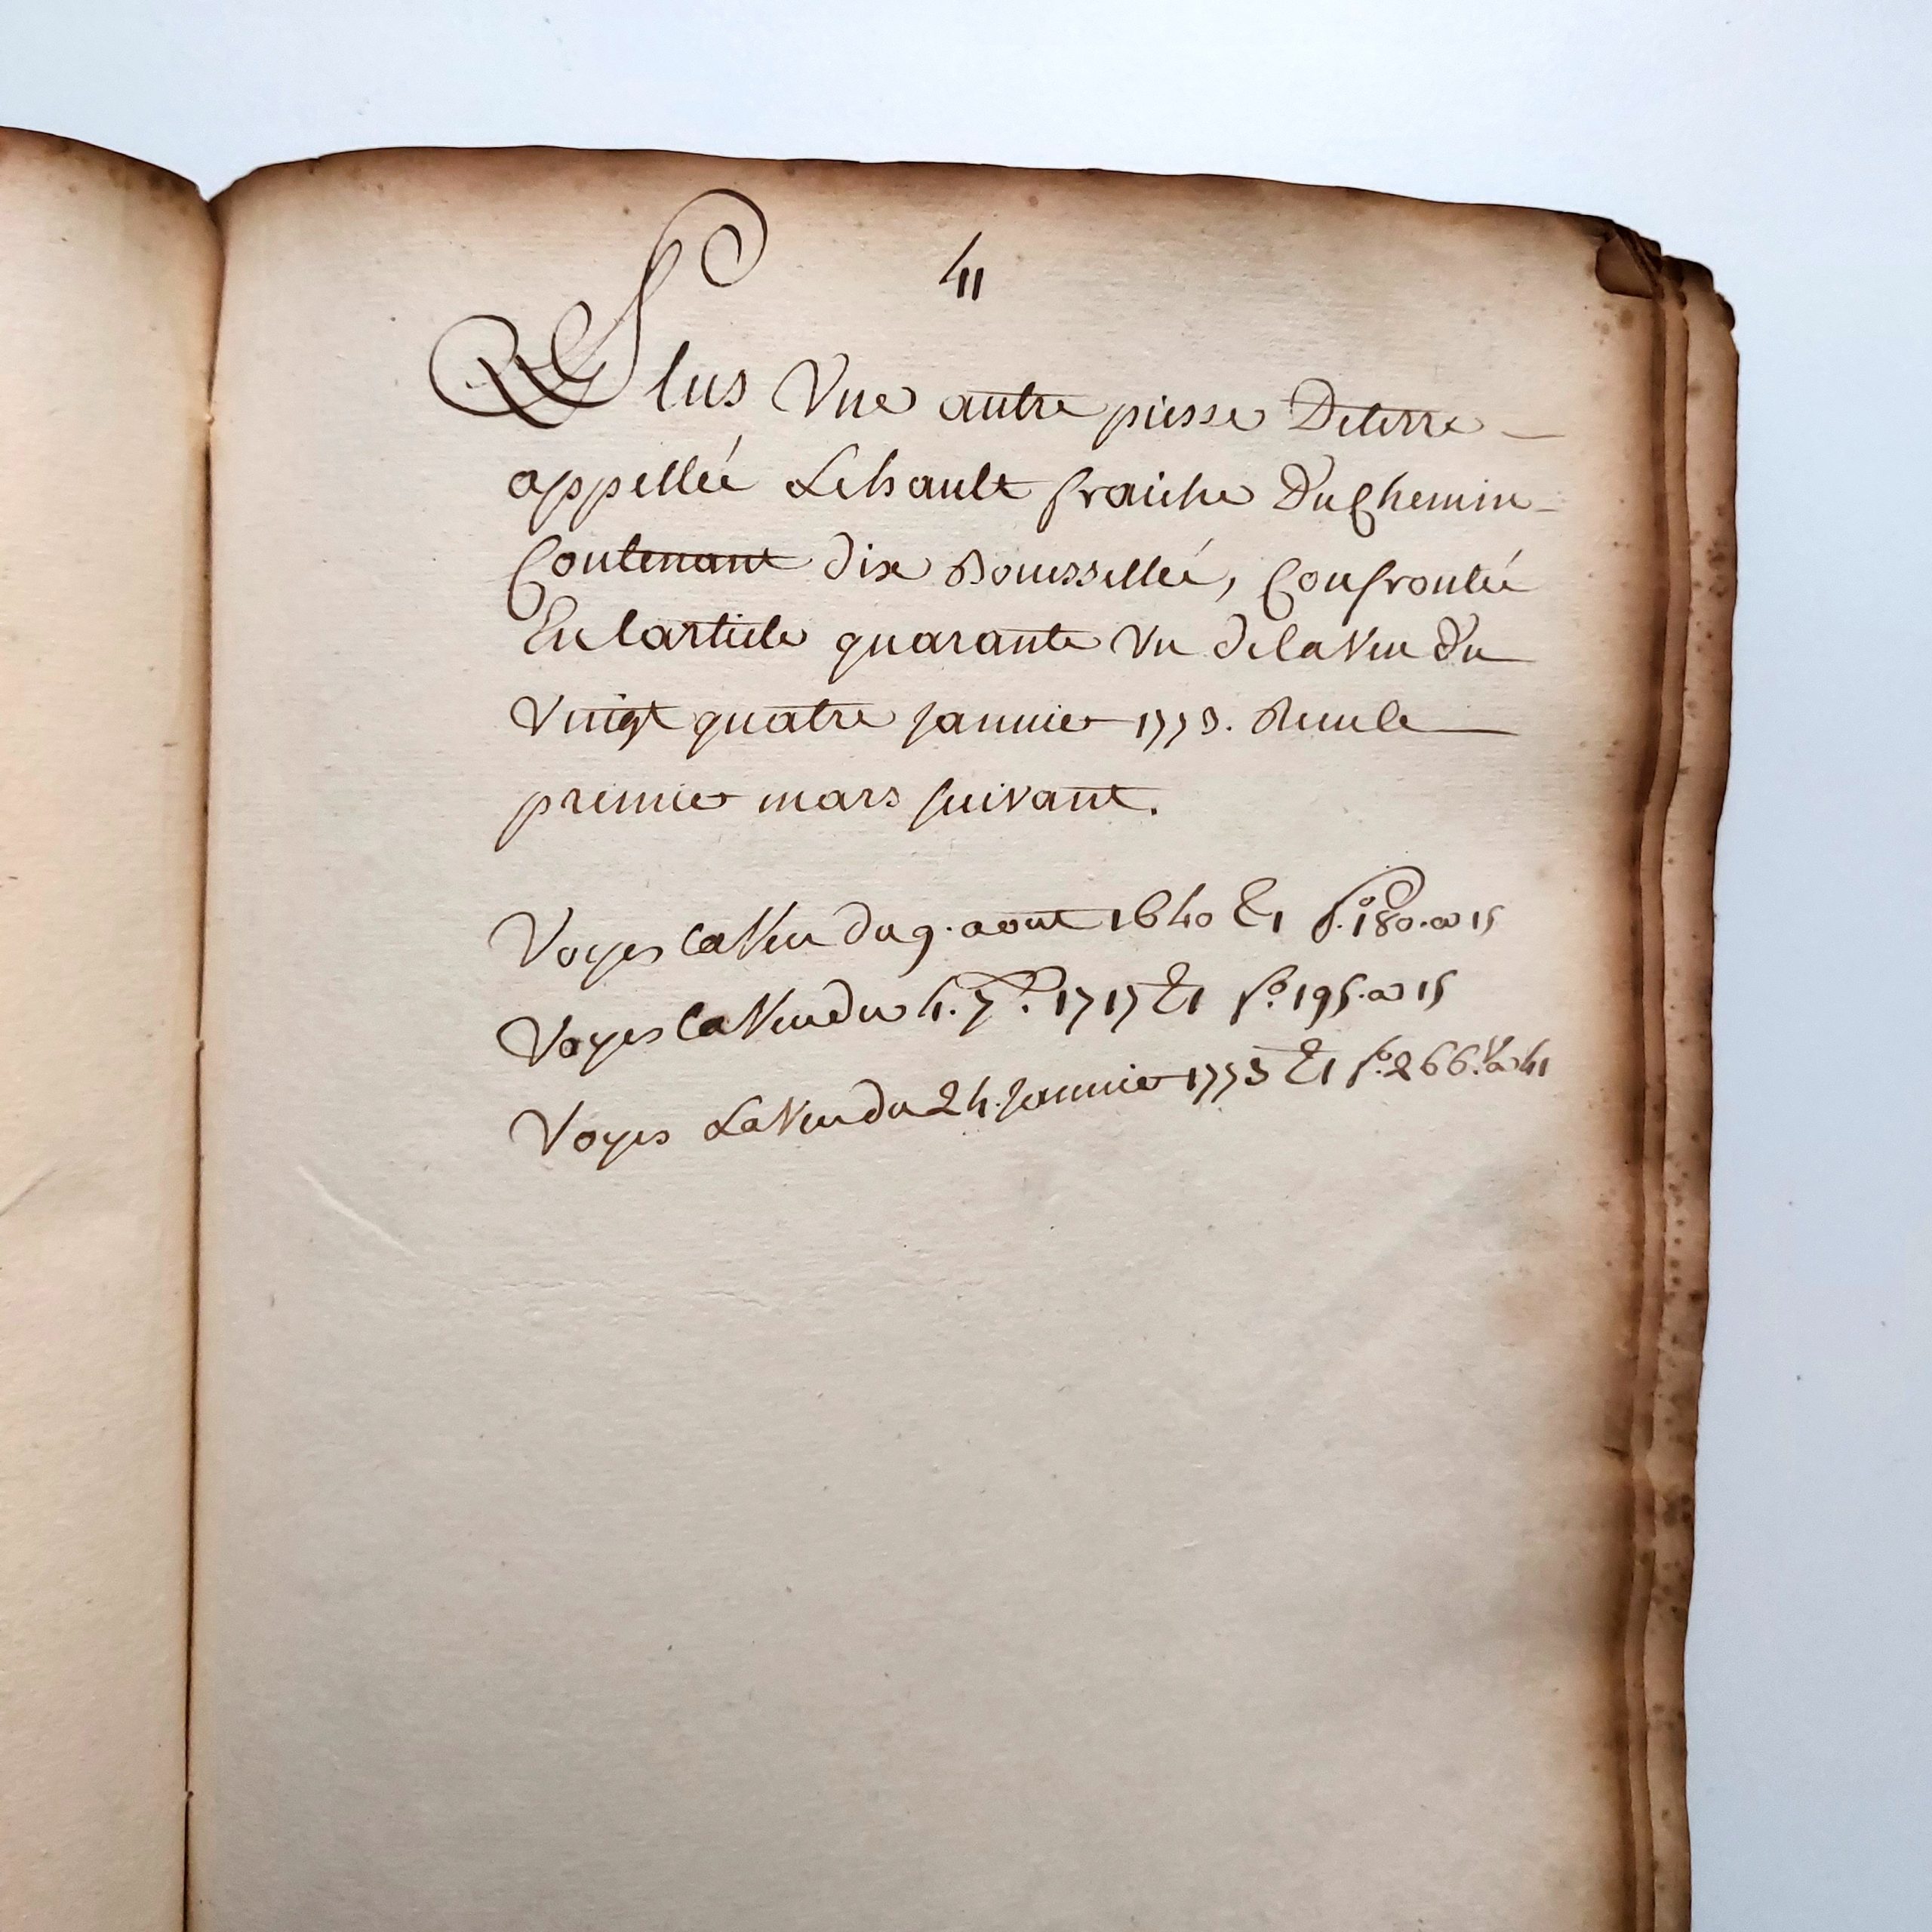 41
Plus Vne autre piesse Deterre
appellée Lehault fraiche Du Chemin
Contenant dix Bouessellée, Confrontée
En larticle quarante Vn dela Veu du
Vingt quatre jannier 1773. Renule
premier mars suivant.
Voyes la Veu du 9. aout 1640 Et f.º 180. a 15
Voyes la Veu du 4. 7.re 1717 Et f.º 195. a 15
Voyes La Veu du 24. jannier 1773 Et f.º 266. Vº a 41